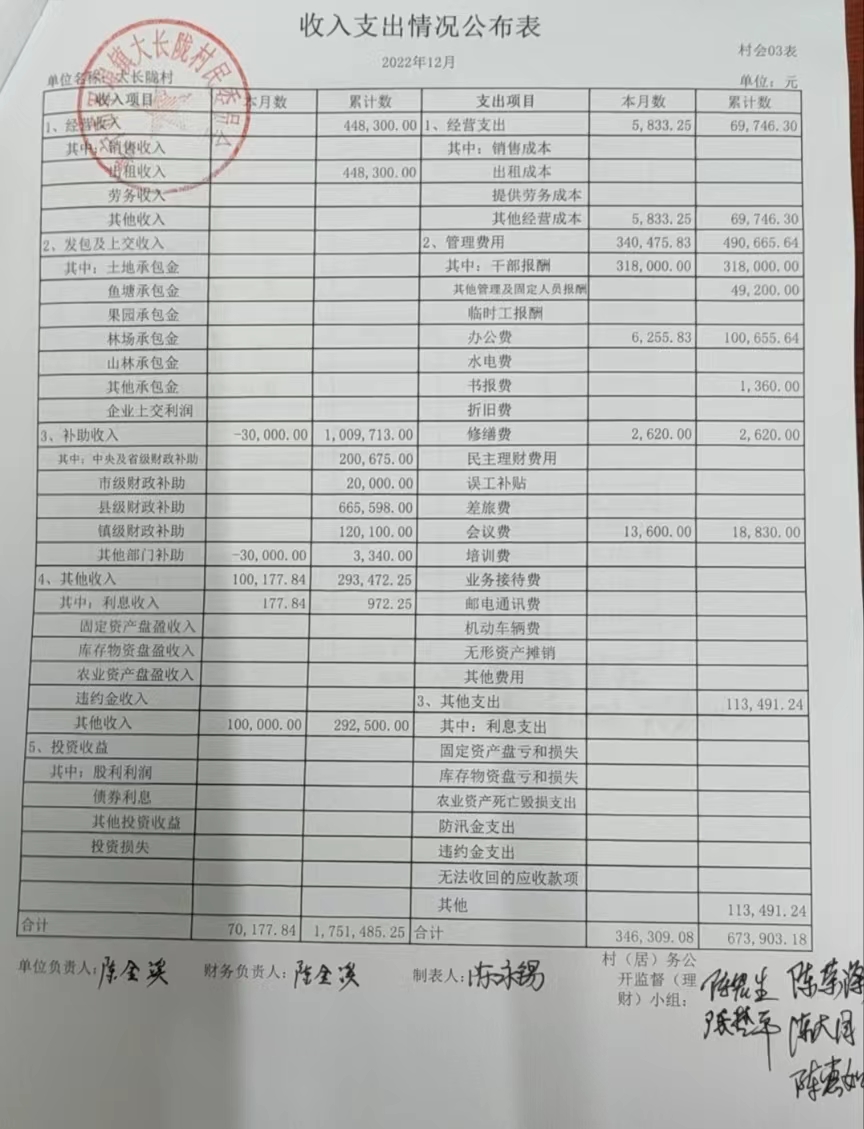 收入支出情况公布表
2022年12月
村会03表
单位名称：大长陇村
单位：元
收入项目 本月数 累计数 支出项目 本月数 累计数
1、经营收入 448,300.00 1、经营支出 5,833.25 69,746.30
其中：销售收入 其中：销售成本
出租收入 448,300.00 出租成本
劳务收入 提供劳务成本
其他收入 其他经营成本 5,833.25 69,746.30
2、发包及上交收入 2、管理费用 340,475.83 490,665.64
其中：土地承包金 其中：干部报酬 318,000.00 318,000.00
鱼塘承包金 其他管理及固定人员报酬 49,200.00
果园承包金 临时工报酬
林场承包金 办公费 6,255.83 100,655.64
山林承包金 水电费
其他承包金 书报费 1,360.00
企业上交利润 折旧费
3、补助收入 -30,000.00 1,009,713.00 修缮费 2,620.00 2,620.00
其中：中央及省级财政补助 200,675.00 民主理财费用
市级财政补助 20,000.00 误工补贴
县级财政补助 665,598.00 差旅费
镇级财政补助 120,100.00 会议费 13,600.00 18,830.00
其他部门补助 -30,000.00 3,340.00 培训费
4、其他收入 100,177.84 293,472.25 业务接待费
其中：利息收入 177.84 972.25 邮电通讯费
固定资产盘盈收入 机动车辆费
库存物资盘盈收入 无形资产摊销
农业资产盘盈收入 其他费用
违约金收入 3、其他支出 113,491.24
其他收入 100,000.00 292,500.00 其中：利息支出
5、投资收益 固定资产盘亏和损失
其中：股利利润 库存物资盘亏和损失
债券利息 农业资产死亡毁损支出
其他投资收益 防汛金支出
投资损失 违约金支出
无法收回的应收款项
其他 113,491.24
合计 70,177.84 1,751,485.25 合计 346,309.08 673,903.18
单位负责人：陈全溪 财务负责人：陈全溪 制表人：陈永锡
村（居）务公
开监督（理
财）小组：
陈大同
镇大长陇村民委员会